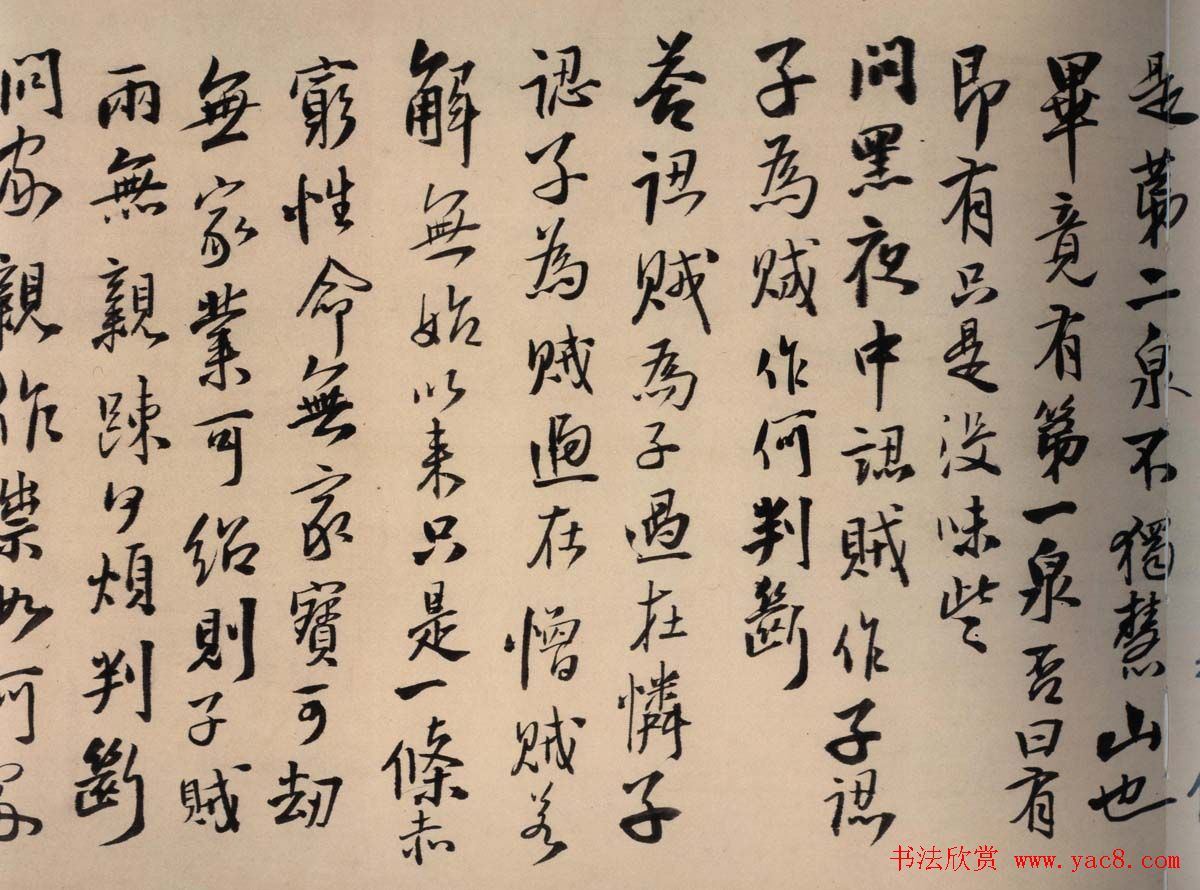 是第二泉不獨慧山也
畢竟有第一泉否曰有
即有只是没味些
問黑夜中認賊作子認
子為賊作何判斷
答認賊為子過在憐子
認子為賊過在憎賊若
解無始以来只是一條赤
窮性命無家寶可劫
無家業可紹則子賊
兩無親踈何煩判斷
問家親作祟如何
书法欣赏 www.yac8.com